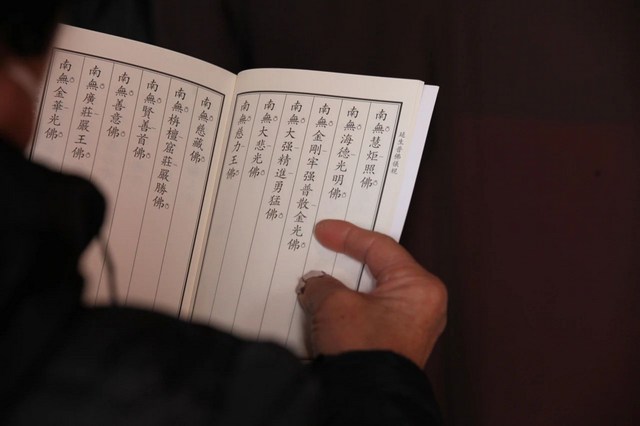 延生普佛儀規
南無慧炬照佛
南無海德光明佛
南無金剛牢强普散金光佛
南無大强精進勇猛佛
南無大悲光佛
南無慈力王佛
南無慈藏佛
南無栴檀窟莊嚴勝佛
南無賢善首佛
南無善意佛
南無廣莊嚴王佛
南無金華光佛